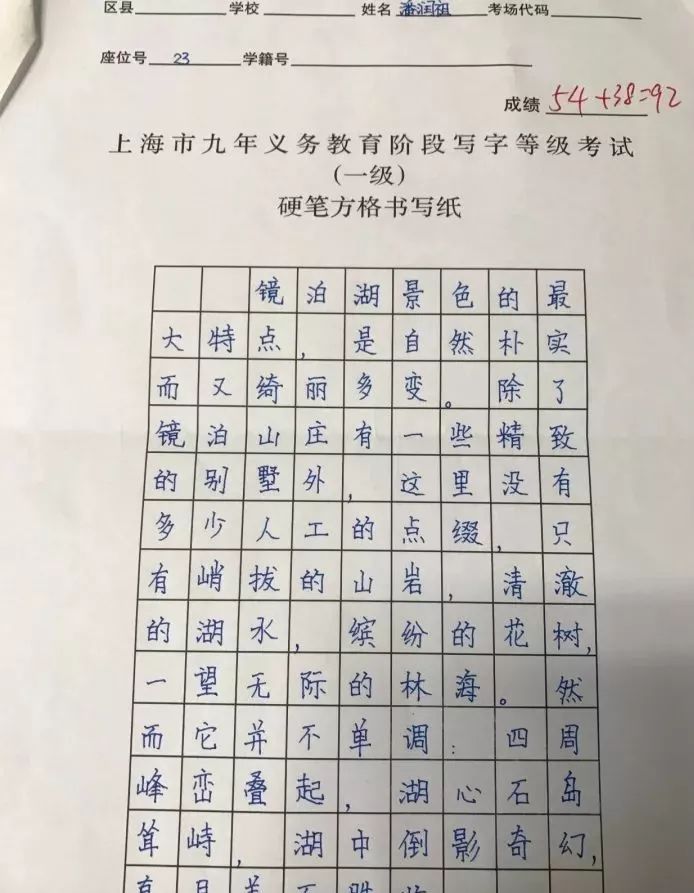 区县 学校 姓名 潘润祖 考场代码
座位号 23 学籍号
成绩 54+38=92
上海市九年义务教育阶段写字等级考试
(一级)
硬笔方格书写纸
镜泊湖景色的最
大特点，是自然朴实
而又绮丽多变。除了
镜泊山庄有一些精致
的别墅外，这里没有
多少人工的点缀，只
有峭拔的山岩，清澈
的湖水，缤纷的花树，
一望无际的林海。然
而它并不单调：四周
峰峦叠起，湖心石岛
耸峙，湖中倒影奇幻，